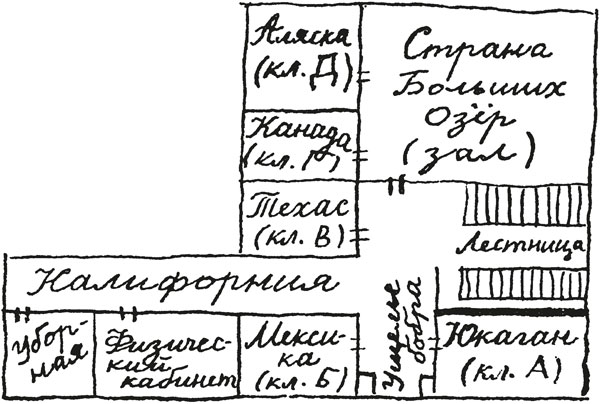 Аляска
(кл. Д)
Страна
Больших
Озёр
(зал)
Канада
(кл. Г)
Техас
(кл. В)
Лестница
Калифорния
Убор-
ная
Физичес-
кий
кабинет
Мекси-
ка
(кл. Б)
Ущелье
бобра
Юкаган
(кл. А)